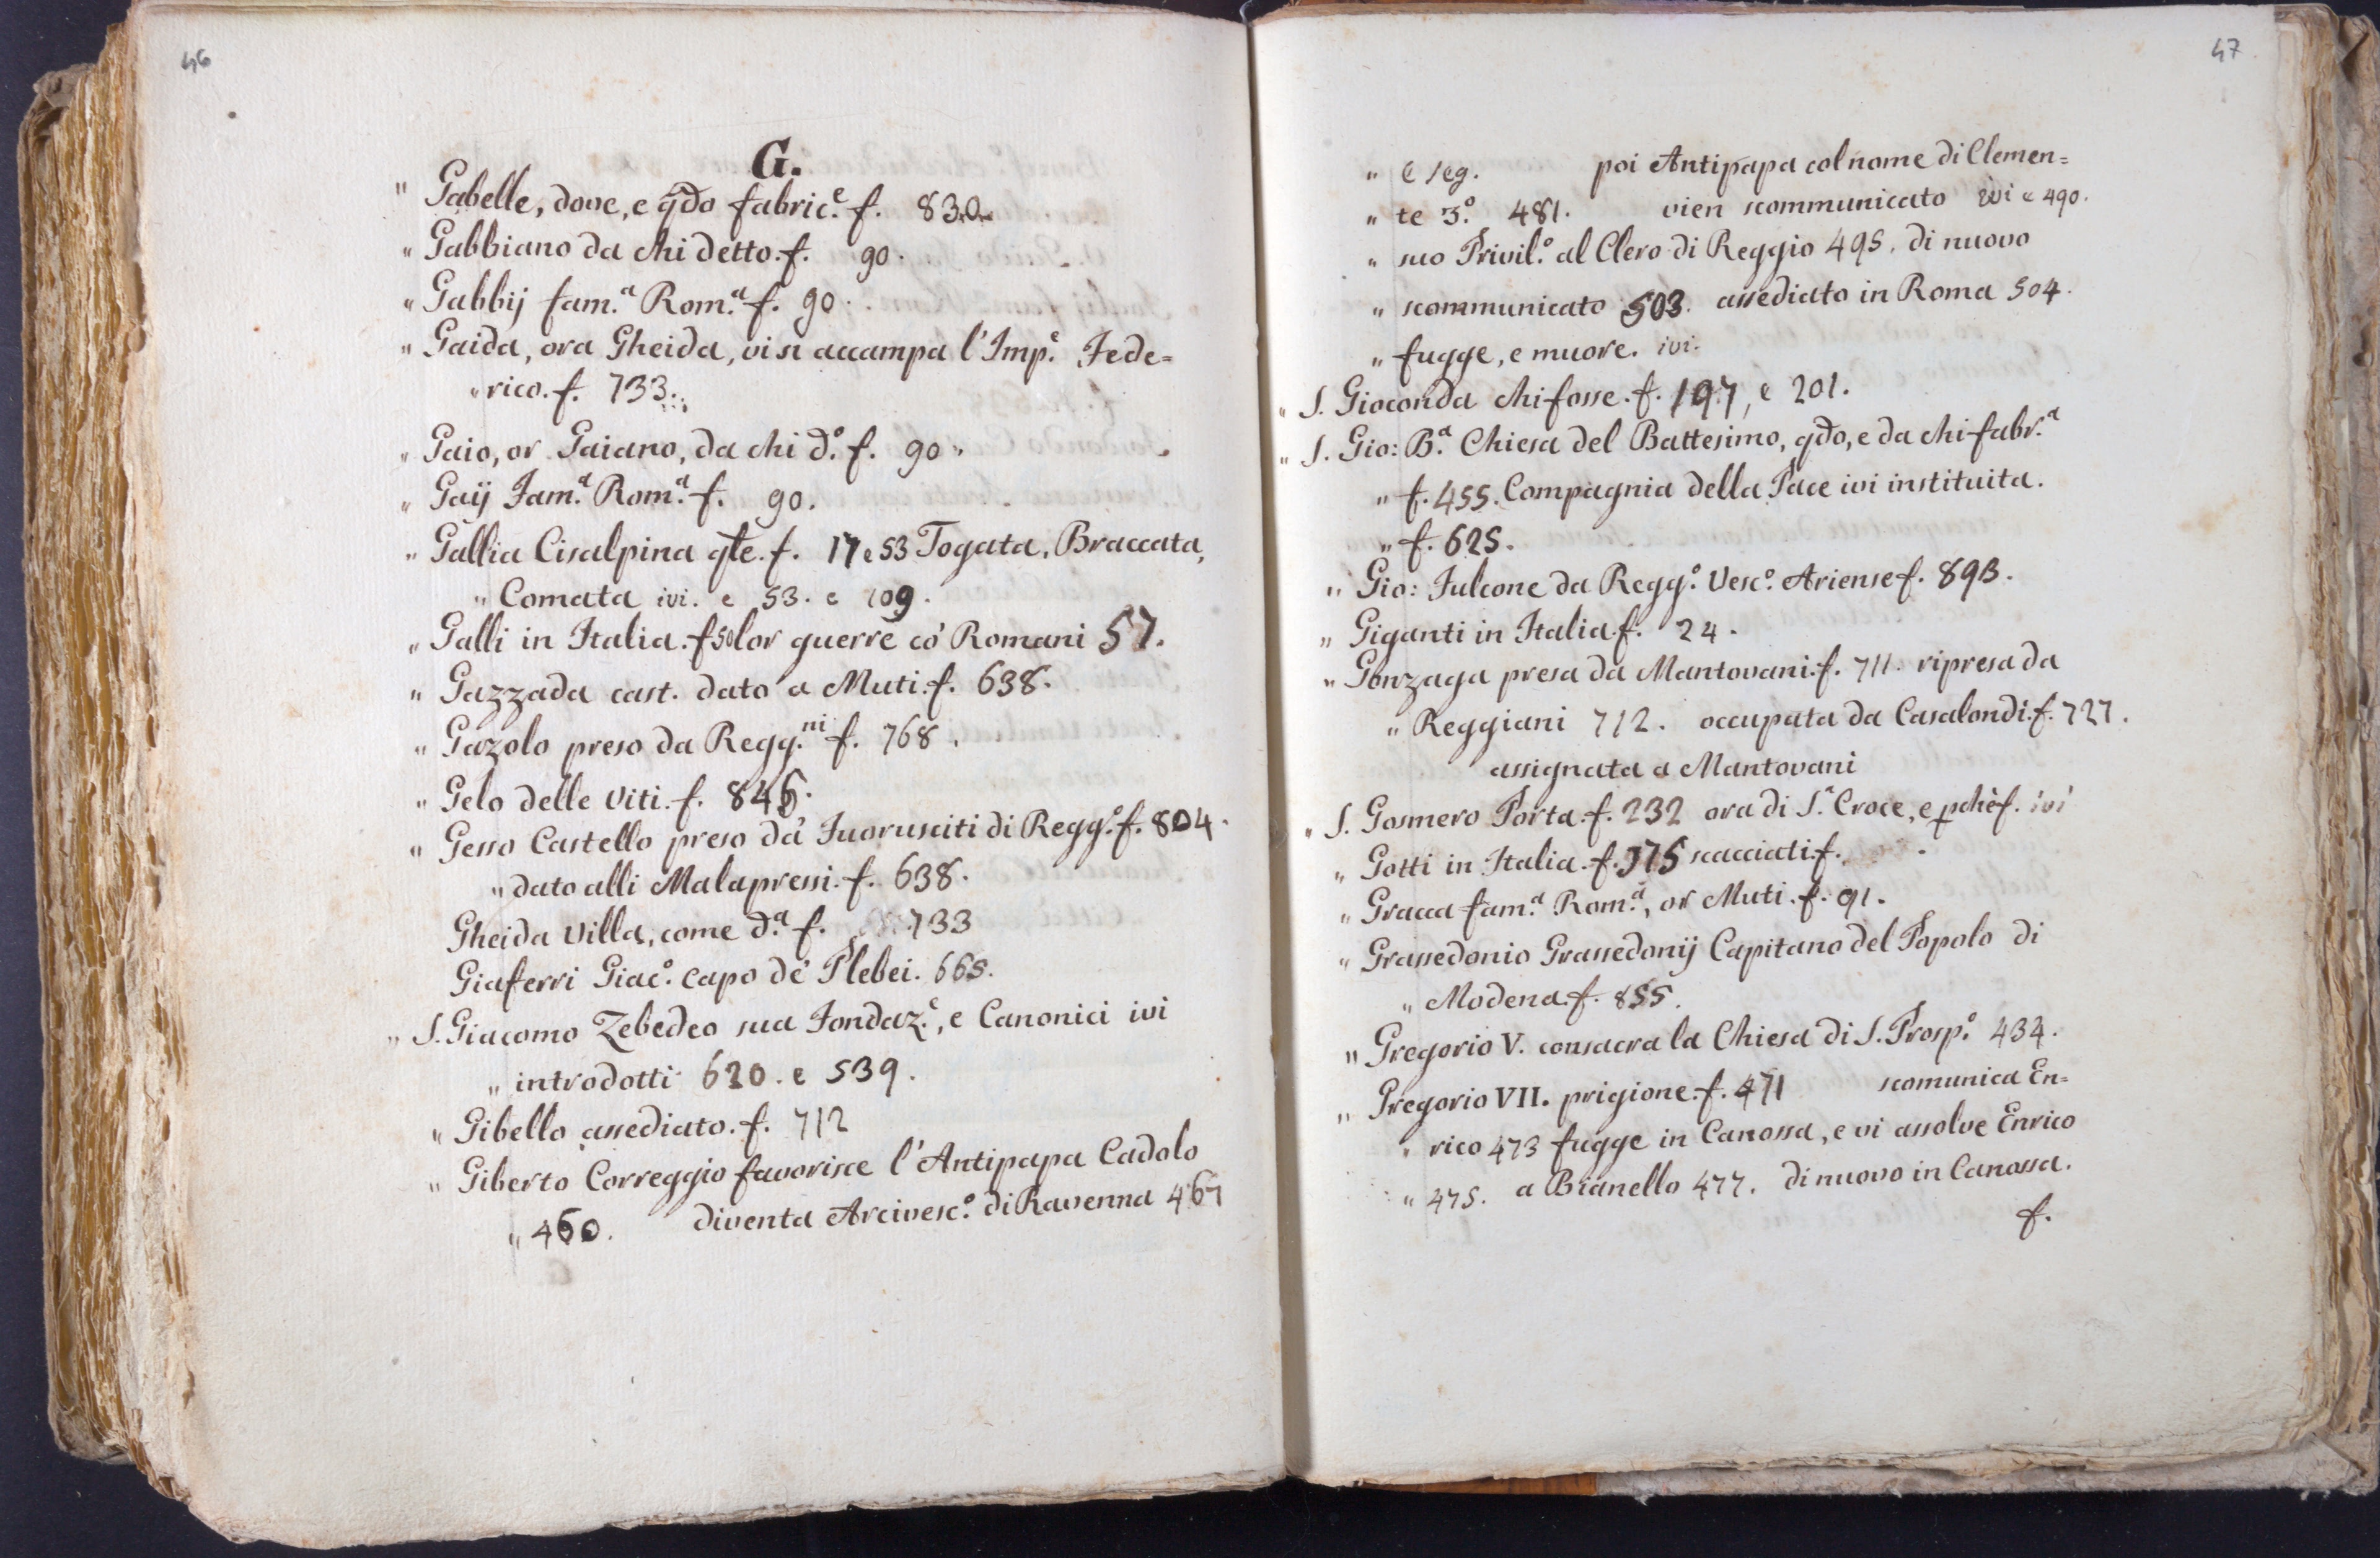 46
G.
" Gabelle, dove, e qdo fabric.e f. 830
" Gabbiano da chi detto. f. 90.
" Gabbij fam.a Rom.a f. 90.
" Gaida, ora Gheida, vi si accampa l'Imp.e Fede=
" rico. f. 733.
" Gaio, or Gaiano, da chi d.o f. 90.
" Gaij Fam.a Rom.a f. 90.
" Gallia Cisalpina qte. f. 17 e 53 Togata, Braccata,
" Comata ivi. e 53. e 109.
" Galli in Italia. f 50 lor guerre co' Romani 57.
" Gazzada cast. dato a Muti. f. 638.
" Gazolo preso da Regg.ni f. 768.
" Gelo delle Viti. f. 846.
" Gesso Castello preso da' Fuorusciti di Regg.o f. 804.
" dato alli Malapressi. f. 638.
Gheida Villa, come d.a f. 733
Giaferri Giac.o capo de' Plebei. 665.
" S. Giacomo Zebedeo sua Fondaz.e, e Canonici ivi
" introdotti 620. e 539.
" Gibello assediato. f. 712
" Giberto Correggio favorisce l'Antipapa Cadolo
" 460. diventa Arcivesc.o di Ravenna 467
47
" e seg. poi Antipapa col nome di Clemen=
" te 3.o 481. vien scommunicato ivi e 490.
" suo Privil.o al Clero di Reggio 495. di nuovo
" scommunicato 503. assediato in Roma 504.
" fugge, e muore. ivi.
" S. Gioconda chi fosse. f. 197, e 201.
" S. Gio: B.a Chiesa del Battesimo, qdo, e da chi fabr.a
" f. 455. Compagnia della Pace ivi instituita.
" f. 625.
" Gio: Fulcone da Regg.o Vesc.o Ariense f. 893.
" Giganti in Italia f. 24.
" Gonzaga presa da Mantovani. f. 711. ripresa da
" Reggiani 712. occupata da Casalondi. f. 727.
assignata a Mantovani
" S. Gosmero Porta. f. 232 ora di S.a Croce, e pchè f. ivi
" Gotti in Italia. f. 375 scacciati f.
" Gracca fam.a Rom.a, or Muti. f. 91.
" Grassedonio Grassedonij Capitano del Popolo di
" Modena. f. 855.
" Gregorio V. consacra la Chiesa di S. Prosp.o 434.
" Gregorio VII. prigione. f. 471 scomunica En=
" rico 473 fugge in Canossa, e vi assolve Enrico
" 475. a Bianello 477. di nuovo in Canossa.
f.